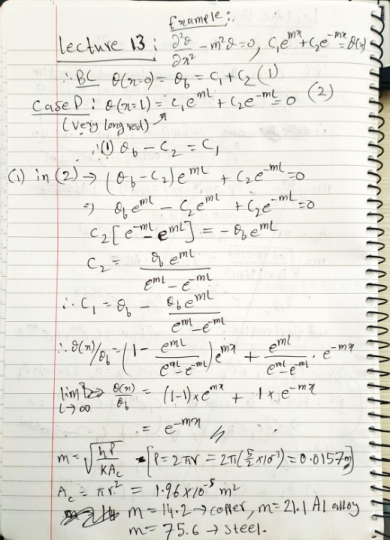 Example:
Lecture 13: ∂²θ/∂x² - m²θ = 0, C₁e^mx + C₂e^-mx = θ(x)
∴ BC θ(x=0) = θb = C₁ + C₂ (1)
Case D: θ(x=L) = C₁e^mL + C₂e^-mL = 0 (2)
(very long rod)
∴ (1) θb - C₂ = C₁
(1) in (2) → (θb - C₂)e^mL + C₂e^-mL = 0
⇒ θb e^mL - C₂e^mL + C₂e^-mL = 0
C₂[e^-mL - e^mL] = -θb e^mL
C₂ = θb e^mL / (e^mL - e^-mL)
∴ C₁ = θb - θb e^mL / (e^mL - e^-mL)
∴ θ(x)/θb = (1 - e^mL / (e^mL - e^-mL)) e^mx + e^mL / (e^mL - e^-mL) · e^-mx
lim L→∞ θ(x)/θb = (1-1) × e^mx + 1 × e^-mx
= e^-mx
m = √(hP / KAc) [P = 2πr = 2π(5/2 × 10⁻³) = 0.0157m]
Ac = πr² = 1.96 × 10⁻⁵ m²
m = 14.2 → copper, m = 21.1 Al alloy
m = 75.6 → steel.